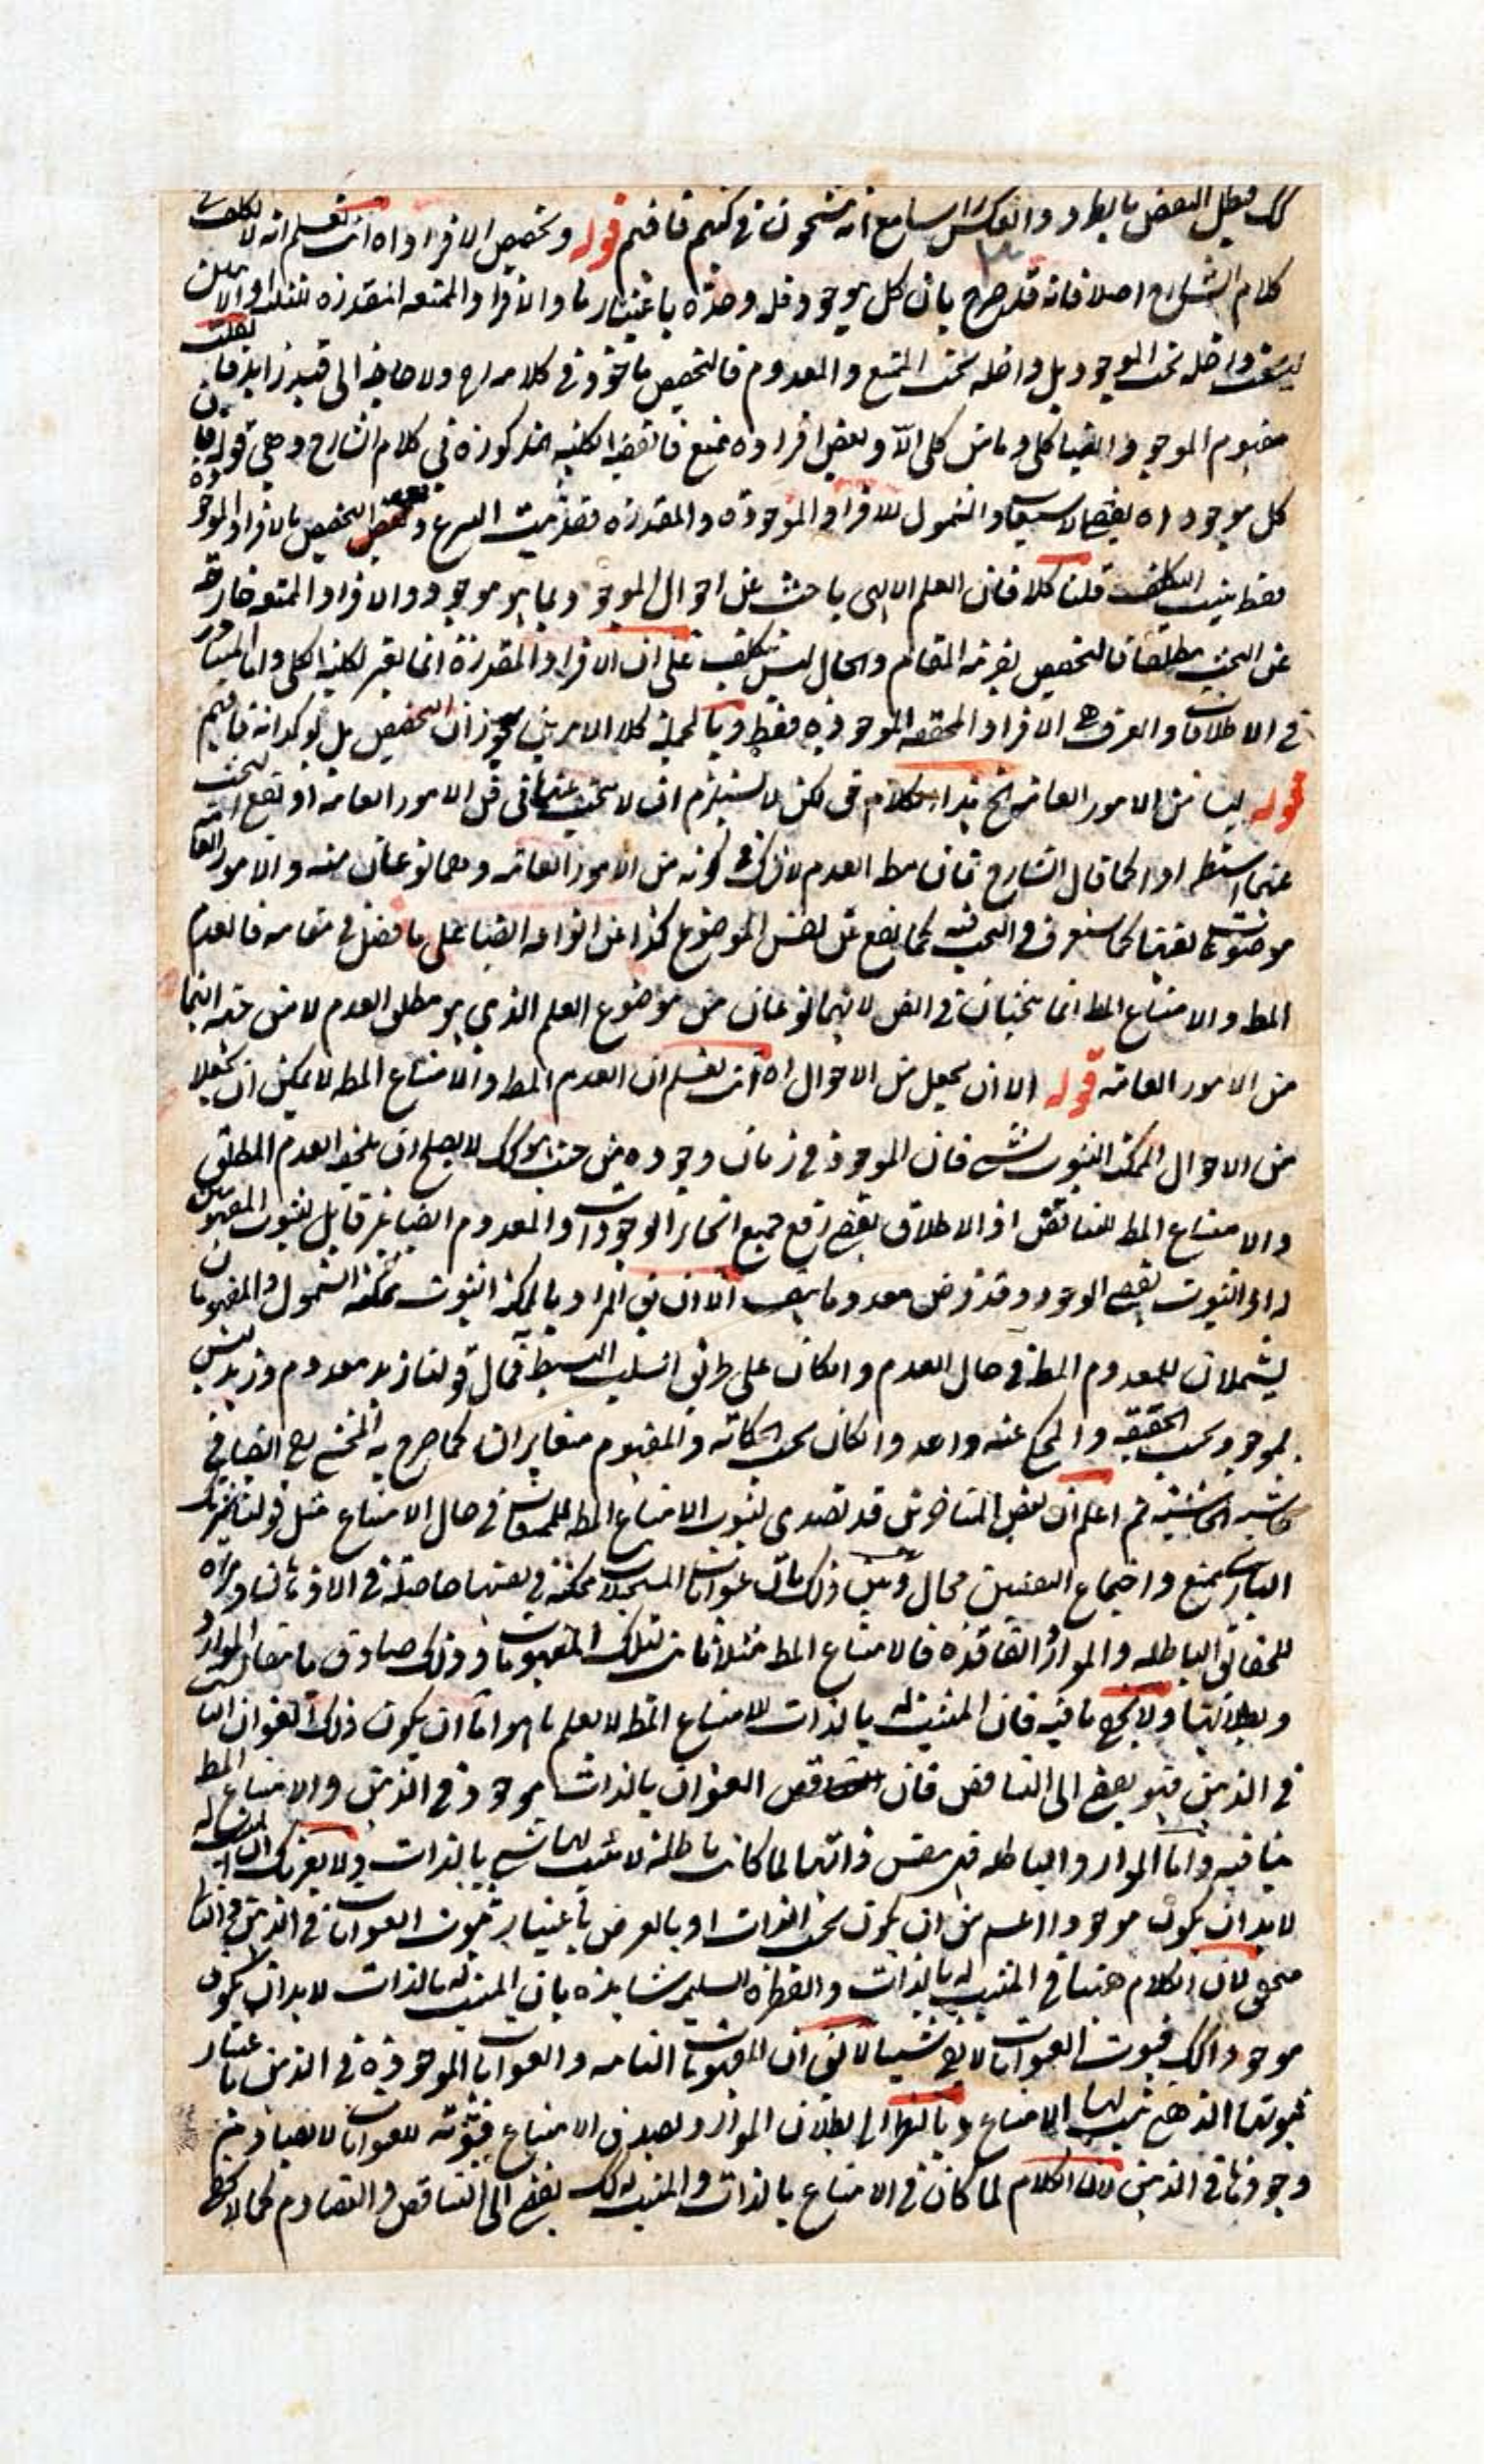 فبطل النقض بالطرد والعكس مع انه مشحون في كتبهم فافهم قوله وتخصيص الافراد اه انت تعلم انه لا تكلف في
كلام الشارح اصلا فانه قد صرح بان كل موجود فله وحدة باعتبار ما والافراد الممتنعة المقدرة
ليست داخلة تحت الموجود بل داخلة تحت الممتنع والمعدوم فالتخصيص ماخوذ في كلامه ولا حاجة الى قيد زايد فان قلت
مفهوم الموجود ايضا كلي وما من كلي الا وبعض افراده ممتنع فالقضية الكلية المذكورة في كلام الشارح وهي قوله فان
كل موجود اه يقتضي الاستيعاب والشمول للافراد الموجودة والمقدرة التخصيص بالافراد الموجودة
فقط التكلف قلنا كلا فان العلم الالهي باحث عن احوال الموجود بما هو موجود والافراد الممتنعة خارجة
عن البحث مطلقا فالتخصيص بقرينة المقام والحال ليس بتكلف على ان الافراد المقدرة انما يعتبر لكلية الكلي واما المتبادر
في الاطلاقات والعرف هي الافراد المحققة الموجودة فقط وبالجملة كلا الامرين يجوزان التخصيص بل يوكدانه فافهم
قوله ليسا من الامور العامة الخ هذا الكلام حق لكن لا يستلزم ان لا يبحث عنهما في فن الامور العامة او يقع البحث
عنهما استطرادا كما قال الشارح فان مط العدم لا شك في كونه من الامور العامة وهما نوعان منه والامور العامة
موضوعات كما ستعرف والبحث فيه كما يقع عن نفس الموضوع كذا عن انواعه ايضا على ما فصل في مقامه فالعدم
المط والامتناع المط انما يبحثان في الفن لانهما نوعان من موضوع العلم الذي هو مطلق العدم لا من حيث انهما
من الامور العامة قوله الا ان يجعل من الاحوال اه انت تعلم ان العدم المط والامتناع المط لا يمكن ان يجعلا
من الاحوال الممكنة الثبوت فان الموجود في زمان وجوده من حيث هو كك لا يصلح ان يلحقه العدم المطلق
والامتناع المط للتناقض اذ الاطلاق يقتضي رفع جميع انحاء الوجودات والمعدوم ايضا غير قابل لثبوت المفهومين
له اذ الثبوت يقتضي الوجود وقد فرض معدوما الا ان يق المراد بالممكنة الثبوت ممكنة الشمول والمفهومان
يشملان للمعدوم المط في حال العدم وان كان على طريق السلب البسيط فمآل قولنا زيد معدوم وزيد ليس
بموجود بحسب الحقيقة والمحكي عنه واحد وان كان بحسب الحكاية والمفهوم متغايران كما صرح به المحشي ايضا في
حاشية الحاشية ثم اعلم ان بعض المتاخرين قد تصدى لثبوت الامتناع المط للممتنعات في حال الامتناع مثل قولنا شريك
الباري ممتنع واجتماع النقيضين محال وبين ذلك بان عنوانات المستحيلات ممكنة في نفسها حاصلة في الاذهان
للحقائق الباطلة والموارد الفاقدة فالامتناع المط مثلا ثابت لتلك المفهومات وذلك صادق بانتفاء الموارد
وبطلانها ولا يخفى ما فيه فان المثبت له بالذات للامتناع المط لا يعلم ما هو اما ان يكون ذلك العنوان الثابت
في الذهن فهو يفضي الى التناقض فان العنوان بالذات موجود في الذهن والامتناع المط
ينافيه واما الموارد الباطلة فهي بنفس ذاتها لما كانت باطلة لا يثبت لها شي بالذات ولا يغرنك ان المثبت له
لابد ان يكون موجودا اعم من ان يكون بحسب الذات او بالعرض باعتبار ثبوت العنوانات في الذهن
لان الكلام ههنا في المثبت له بالذات والفطرة السليمة شاهدة بان المثبت له بالذات لابد ان يكون
موجودا كك فثبوت العنوانات لا يغني شيئا لا يق ان المفهومات الثابتة والعنوانات الموجودة في الذهن باعتبار
ثبوتها الذهني يثبت لها الامتناع وبالنظر الى بطلان الموارد يصدق الامتناع فثبوته للعنوانات لا يصادم
وجودها في الذهن لان الكلام لما كان في الامتناع بالذات والمثبت له كك يفضي الى التناقض والتصادم كما لا يخفى